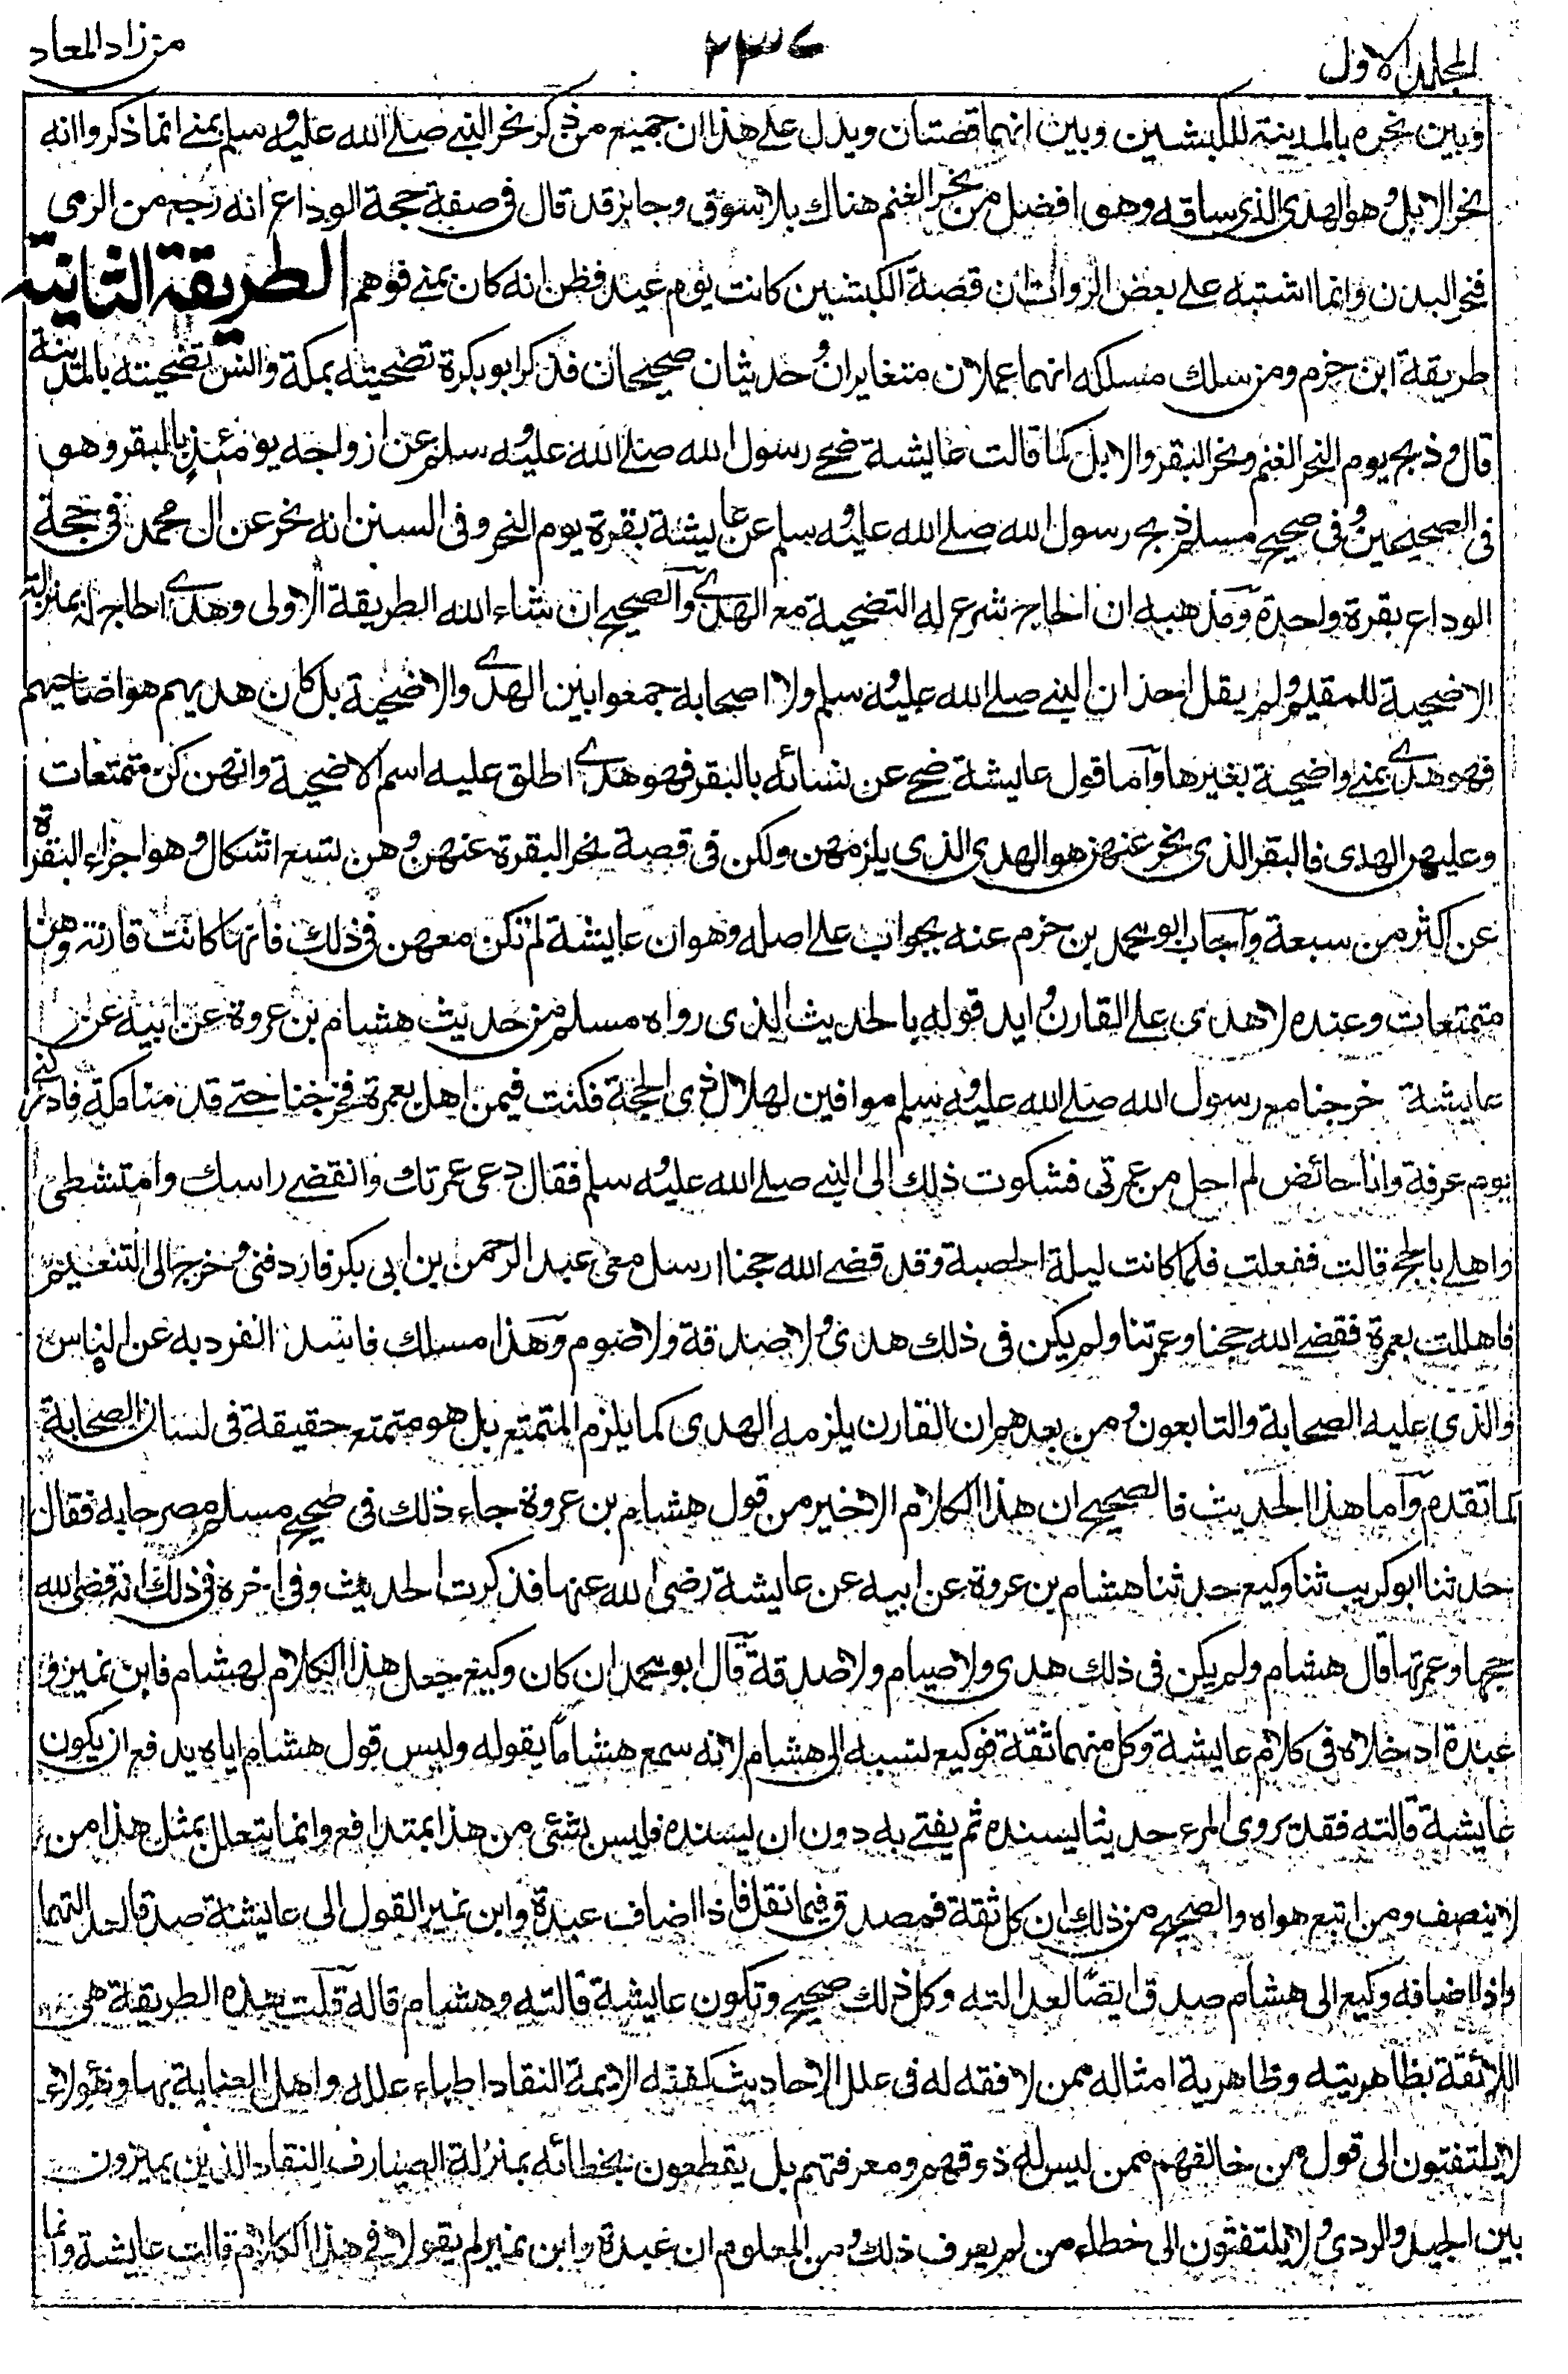 المجلد الاول
٢٣٧
من زاد المعاد
وبين نحره بالمدينة للكبشين وبين انهما قضتان ويدل على هذا ان جميع من ذكر نحر النبي صلى الله عليه وسلم بمنى انما ذكروا انه
نحر الابل وهو الهدى الذى ساقه وهو افضل من نحر الغنم هناك بلا سوق وجابر قد قال فى صفة حجة الوداع انه رجع من الرمى
فنحر البدن وانما اشتبه على بعض الرواة ان قصة الكبشين كانت يوم عيد فظن انه كان بمنى فوهم الطريقة الثانية
طريقة ابن حزم ومن سلك مسلكه انهما عملان متغايران وحديثان صحيحان فذكر ابو بكرة تضحيته بمكة وانس تضحيته بالمدينة
قال وذبح يوم النحر الغنم ونحر البقر والابل كما قالت عايشة ضحى رسول الله صلى الله عليه وسلم عن ازواجه يومئذ بالبقر وهو
فى الصحيحين وفى صحيح مسلم ذبح رسول الله صلى الله عليه وسلم عن عايشة بقرة يوم النحر وفى السنن انه نحر عن ال محمد فى حجة
الوداع بقرة واحدة ومذهبه ان الحاج شرع له التضحية مع الهدى والصحيح ان شاء الله الطريقة الاولى وهدى الحاج له بمنزلة
الاضحية للمقيم ولم يقل احد ان النبى صلى الله عليه وسلم ولا اصحابه جمعوا بين الهدى والاضحية بل كان هديهم هو اضاحيهم
فهو هدى بمنى واضحية بغيرها وآما قول عايشة ضحى عن نسائه بالبقر فهو هدى اطلق عليه اسم الاضحية وانهن كن متمتعات
وعليهن الهدى فالبقر الذى نحر عنهن هو الهدى الذى يلزمهن ولكن فى قصة نحر البقرة عنهن وهن تسع اشكال وهو اجزاء البقرة
عن اكثر من سبعة وآجاب ابو محمد بن حزم عنه بجواب على اصله وهو ان عايشة لم تكن معهن فى ذلك فانها كانت قارنة وهن
متمتعات وعنده لا هدى على القارن وايد قوله بالحديث الذى رواه مسلم من حديث هشام بن عروة عن ابيه عن
عايشة خرجنا مع رسول الله صلى الله عليه وسلم موافين لهلال ذى الحجة فكنت فيمن اهل بعمرة فخرجنا حتى قدمنا مكة فادركنى
يوم عرفة وانا حائض لم احل من عمرتى فشكوت ذلك الى النبى صلى الله عليه وسلم فقال دعى عمرتك وانقضى راسك وامتشطى
واهلى بالحج قالت ففعلت فلما كانت ليلة الحصبة وقد قضى الله حجنا ارسل معى عبد الرحمن بن ابى بكر فاردفنى وخرج الى التنعيم
فاهللت بعمرة فقضى الله حجنا وعمرتنا ولم يكن فى ذلك هدى ولا صدقة ولا صوم وهذا مسلك فاسد انفرد به عن الناس
والذى عليه الصحابة والتابعون ومن بعدهم ان القارن يلزمه الهدى كما يلزم المتمتع بل هو متمتع حقيقة فى لسان الصحابة
كما تقدم وآما هذا الحديث فالصحيح ان هذا الكلام الاخير من قول هشام بن عروة جاء ذلك فى صحيح مسلم مصرحا به فقال
حدثنا ابو كريب ثنا وكيع حدثنا هشام بن عروة عن ابيه عن عايشة رضى الله عنها فذكرت الحديث وفى اخره فى ذلك انه قضى الله
حجها وعمرتها قال هشام ولم يكن فى ذلك هدى ولا صيام ولا صدقة قآل ابو محمد ان كان وكيع جعل هذا الكلام لهشام فابن نمير و
عبدة ادخلاه فى كلام عايشة وكل منهما ثقة فوكيع نسبه الى هشام لانه سمع هشاما يقوله وليس قول هشام اياه يدفع ان يكون
عايشة قالته فقد يروى المرء حديثا يسنده ثم يفتى به دون ان يسنده فليس شئى من هذا بمتدافع وانما يتعلل بمثل هذا من
لا ينصف ومن اتبع هواه والصحيح من ذلك ان كل ثقة فمصدق فيما نقل فاذا اضاف عبدة وابن نمير القول الى عايشة صدقا لعدالتهما
واذا اضافه وكيع الى هشام صدق ايضا لعدالته وكل ذلك صحيح وتكون عايشة قالته وهشام قاله قلت هذه الطريقة هى
اللائقة بظاهريته وظاهرية امثاله ممن لا فقه له فى علل الاحاديث كفقه الايمة النقاد اطباء علله واهل العناية بها وهؤلاء
لا يلتفتون الى قول من خالفهم ممن ليس له ذوقهم ومعرفتهم بل يقطعون بخطائه بمنزلة الصيارف النقاد الذين يميزون
بين الجيد والردى ولا يلتفتون الى خطاء من لم يعرف ذلك ومن المعلوم ان عبدة وابن نمير لم يقولا فى هذا الكلام قالت عايشة وانما